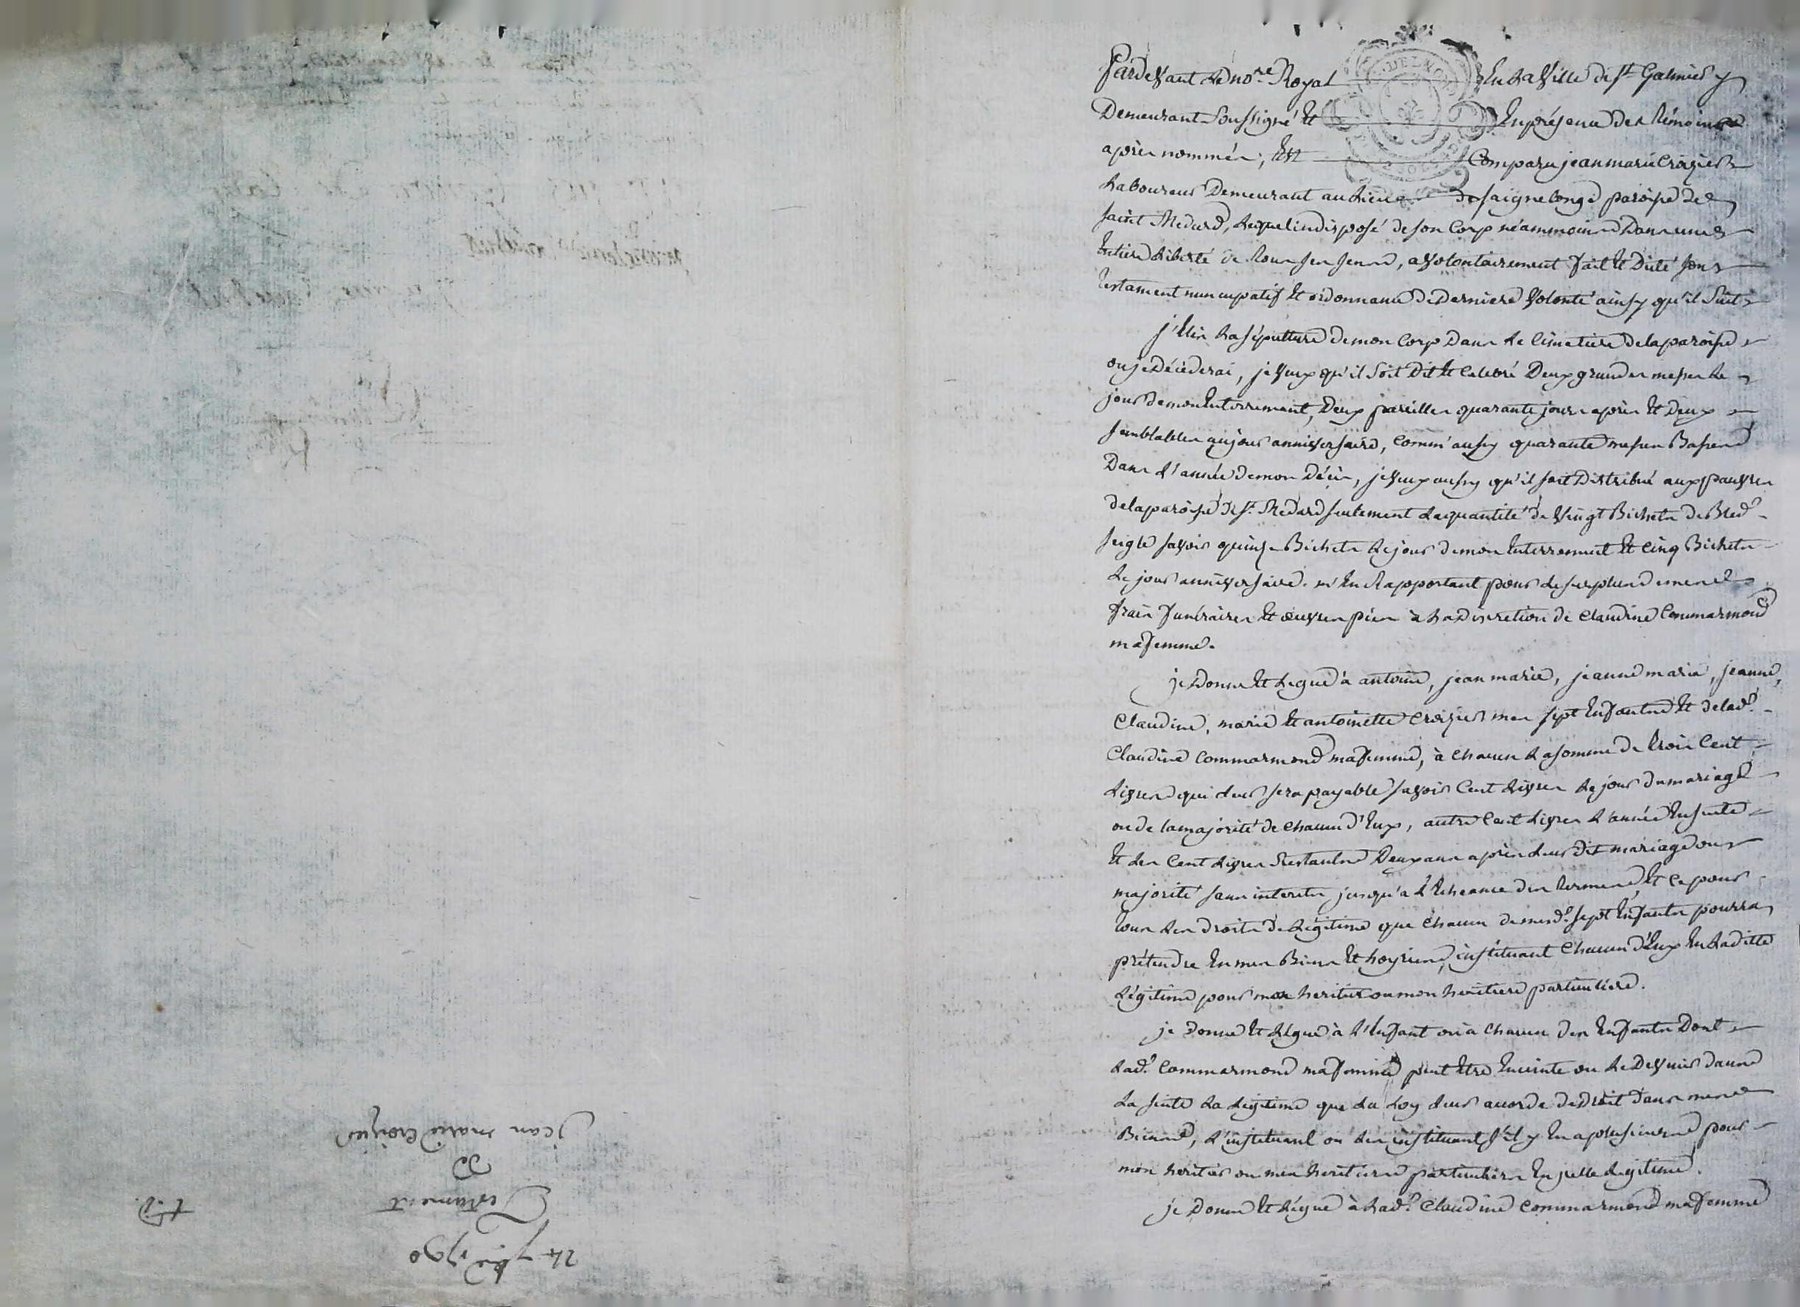 24 7bre 1790
Testament
De
Jean marie Croizier
Pardevant Le nore Royal En La Ville de St Galmier y
Demeurant Soussigné Et En présence des témoins
après nommés, Est Comparu jean marie Croizier
Laboureur Demeurant au Lieu de saignelonge paroisse de
saint Medard, Lequel indisposé de son Corp néammoins Dans une
Entiere Liberté de Tous ses sens, a volontairement fait Et Dicté son
testament nuncupatif Et ordonnance De Derniere Volonté ainsy qu'il Suit
j'Elis La sépulture de mon Corp Dans Le Cimetiere de la paroisse
ou je Décéderai, je Veux qu'il Soit Dit Et Celebré Deux grandes messes Le
jour de mon Enterrement, Deux pareilles quarante jours après Et Deux
semblables au jour anniversaire, Comm'aussy quarante messes Basses
Dans L'année de mon Décès, je Veux aussy qu'il soit Distribué aux pauvres
de la paroisse de St Medard seulement La quantité de Vingt Bichets de Bled
seigle savoir quinze Bichets Le jour de mon Enterrement Et Cinq Bichets
Le jour anniversaire. m'En Rapportant pour Le surplus de mes
frais funéraires Et œuvres pies à La Discretion de Claudine Commarmond
ma femme.
je Donne Et Legue à antoine, jean marie, jeanne marie, jeanne,
Claudine, marie Et antoinette Croizier mes sept Enfants Et de lad.
Claudine Commarmond ma femme, à Chacun La somme de Trois Cent
Livres qui Leur sera payable savoir Cent Livres Le jour du mariage
ou de la majorité de Chacun d'Eux, autre Cent Livres L'année Ensuite
Et Les Cent Livres Restantes Deux ans après Leur Dit mariage ou
majorité sans interets jusqu'à L'Echeance des termes, Et Ce pour
Tous Les droits de Légitime que Chacun de mesd. sept Enfants pourra
prétendre En mes Biens Et hoyrie, instituant Chacun d'Eux En La ditte
Légitime pour mon heritier ou mon heritiere particuliere.
je Donne Et Légue à L'Enfant ou à Chacun des Enfants Dont
Lad. Commarmond ma femme peut Etre Enceinte ou Le Devenir dans
La suite La Légitime que La Loy Leur accorde de Droit dans mes
Biens, L'instituant ou Les instituant s'il y En a plusieurs pour
mon heritier ou mes heritiers particuliers En jcelle Légitime.
je Donne Et Légue à Lad. Claudine Commarmond ma femme